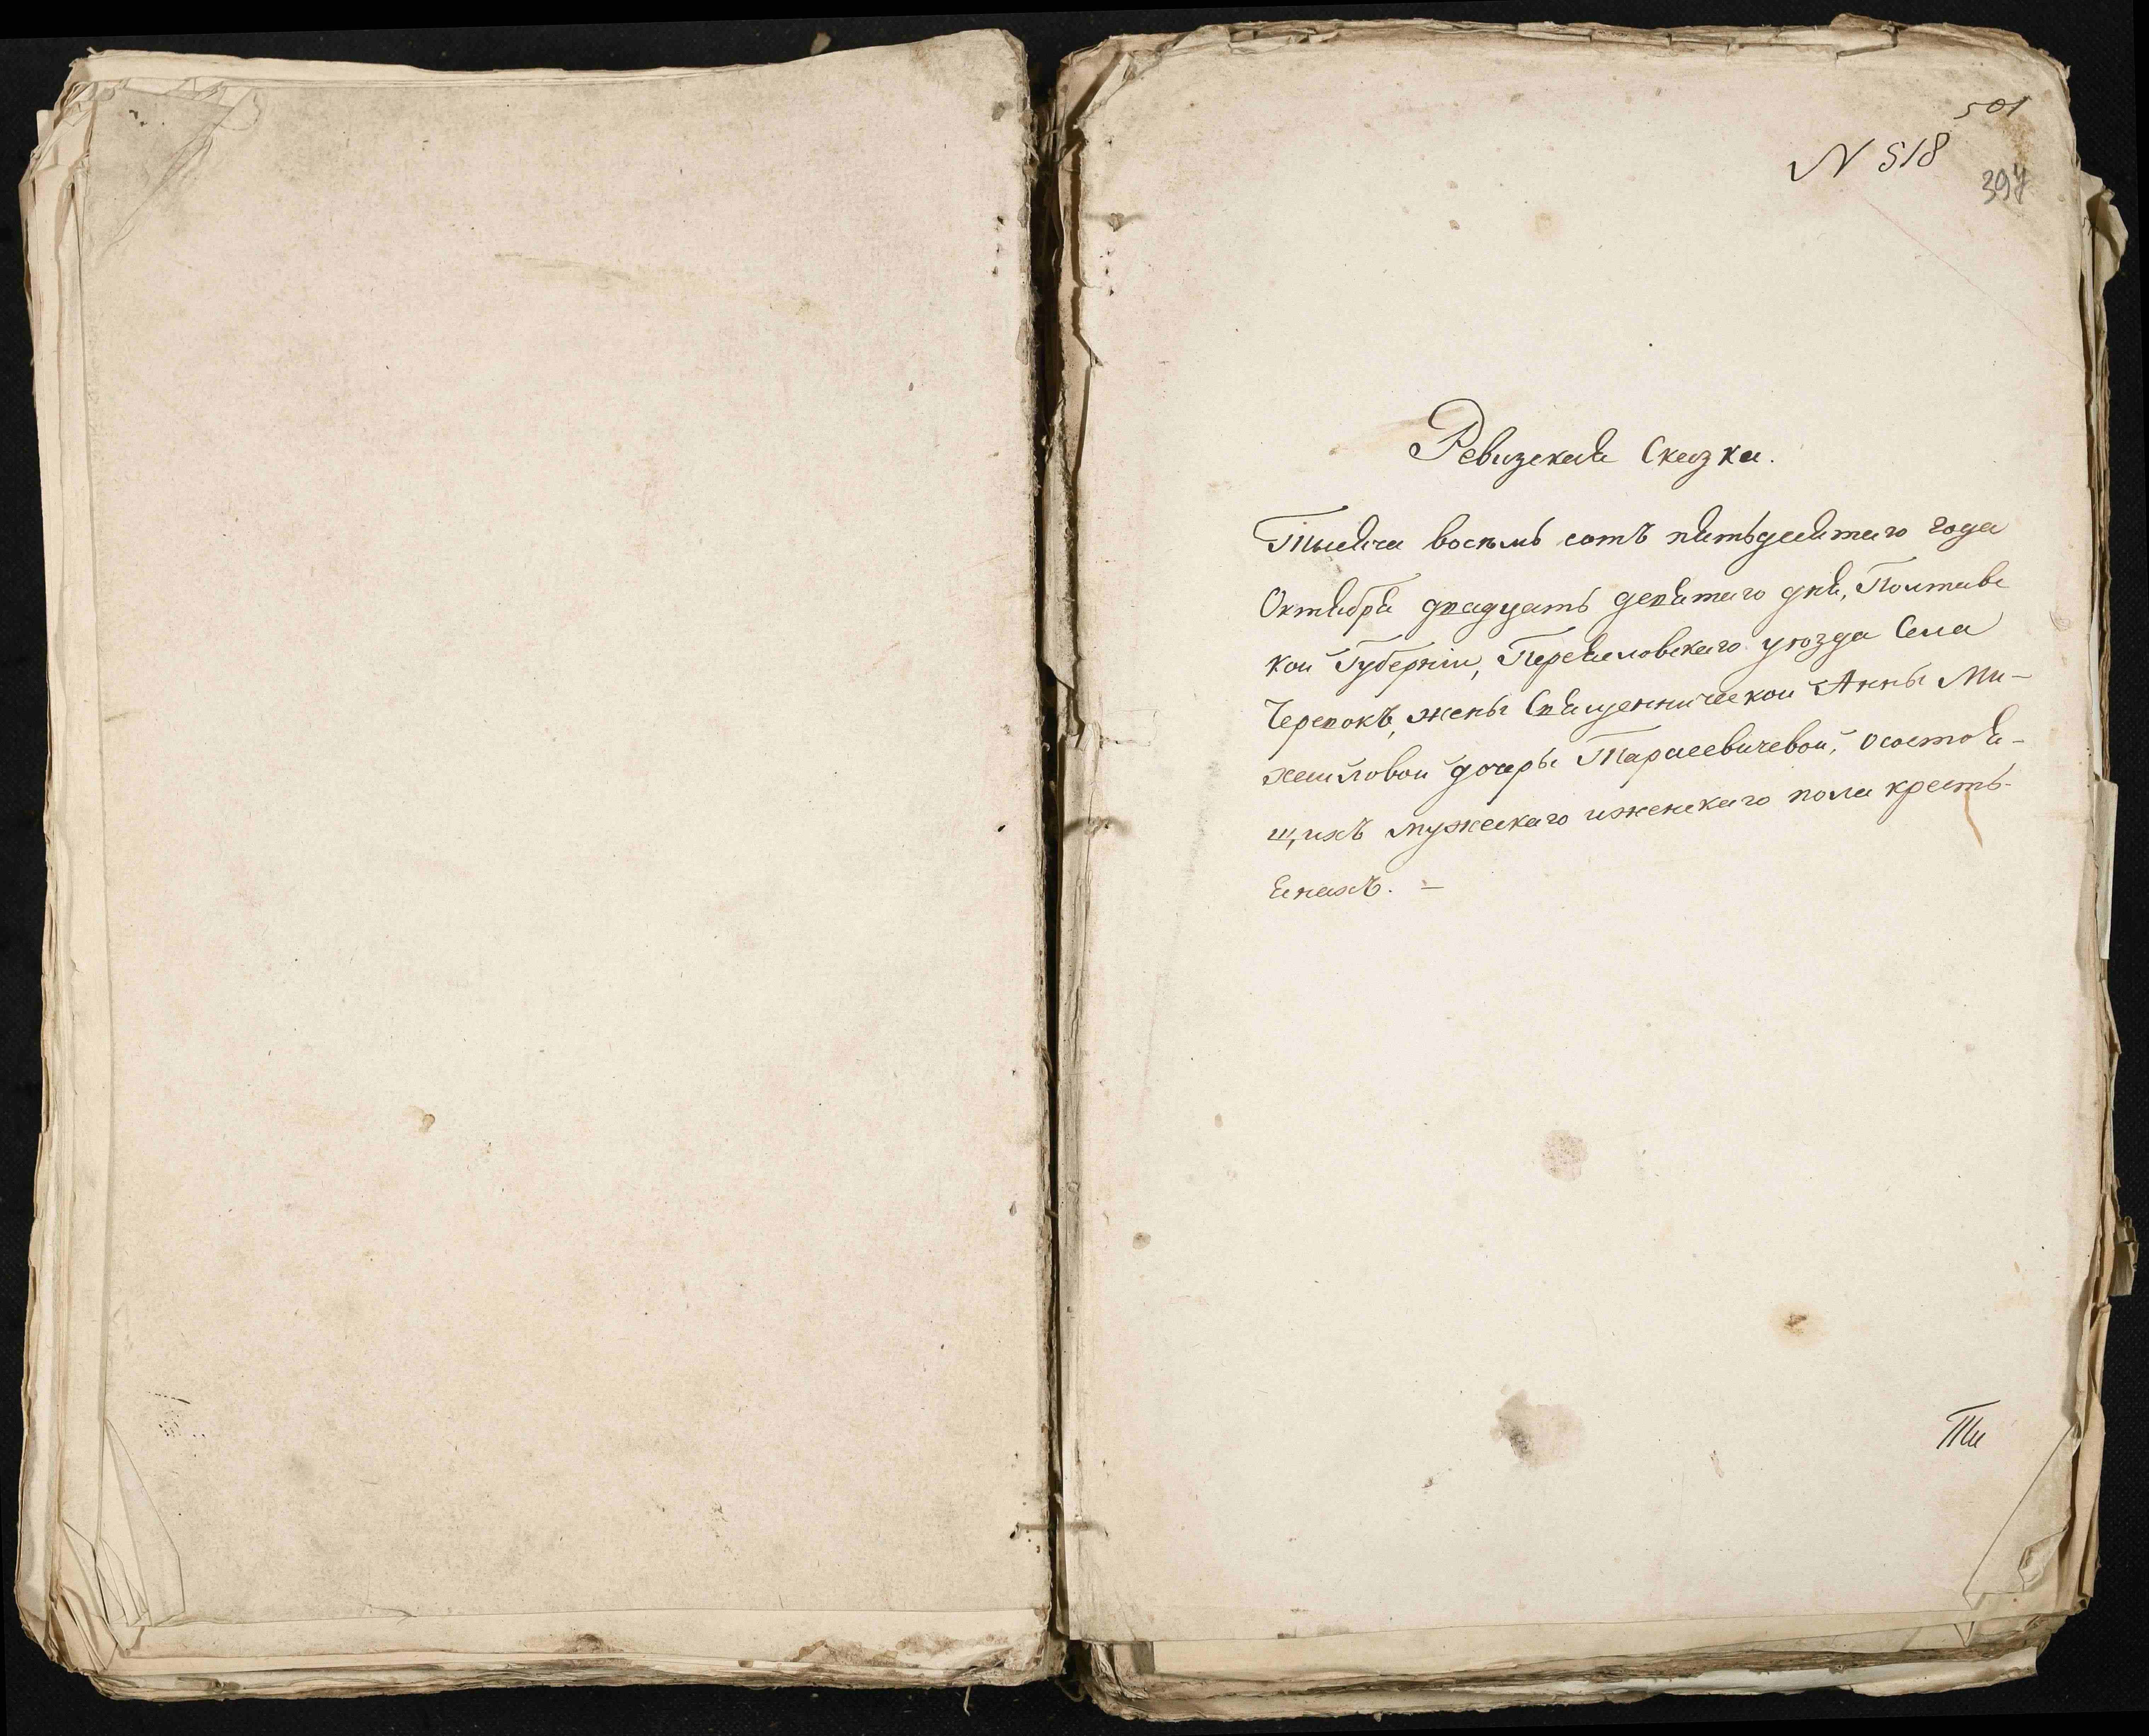 501
N 518
397
Ревизская Сказка.
Тысяча восемь сотъ пятьдесятаго года
Октября двадцать девятаго дня, Полтавс
кой Губерніи, Переяславскаго уѣзда Села
Черевокъ, жены Священнической Анны Ми-
хайловой дочеры Тарасевичевой, осостоя-
щихъ мужескаго иженскаго пола кресть-
янахъ. —